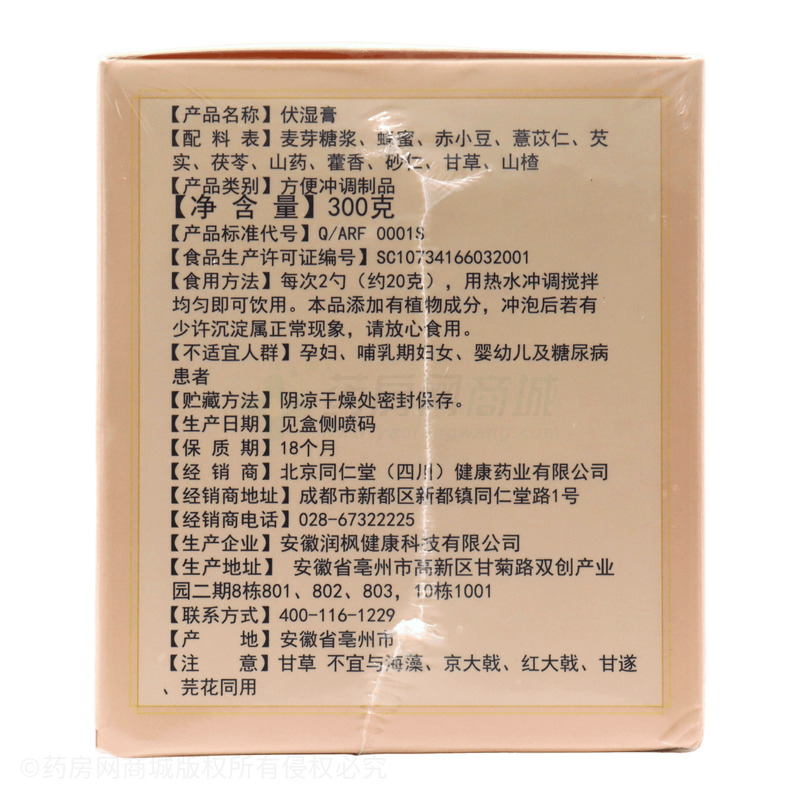 【产品名称】伏湿膏
【配 料 表】麦芽糖浆、蜂蜜、赤小豆、薏苡仁、芡
实、茯苓、山药、藿香、砂仁、甘草、山楂
【产品类别】方便冲调制品
【净 含 量】300克
【产品标准代号】Q/ARF 0001S
【食品生产许可证编号】SC10734166032001
【食用方法】每次2勺（约20克），用热水冲调搅拌
均匀即可饮用。本品添加有植物成分，冲泡后若有
少许沉淀属正常现象，请放心食用。
【不适宜人群】孕妇、哺乳期妇女、婴幼儿及糖尿病
患者
【贮藏方法】阴凉干燥处密封保存。
【生产日期】见盒侧喷码
【保 质 期】18个月
【经 销 商】北京同仁堂（四川）健康药业有限公司
【经销商地址】成都市新都区新都镇同仁堂路1号
【经销商电话】028-67322225
【生产企业】安徽润枫健康科技有限公司
【生产地址】 安徽省亳州市高新区甘菊路双创产业
园二期8栋801、802、803，10栋1001
【联系方式】400-116-1229
【产 地】安徽省亳州市
【注 意】甘草 不宜与海藻、京大戟、红大戟、甘遂
、芫花同用
药房网商城
©药房网商城版权所有侵权必究